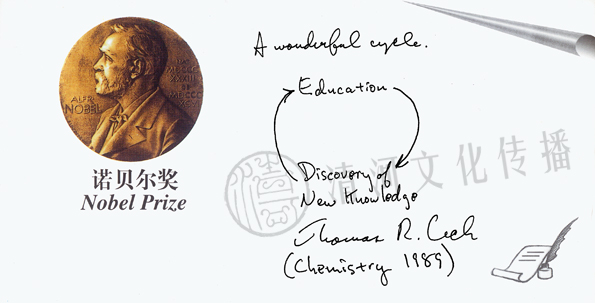 ALFR
NOBEL
诺贝尔奖
Nobel Prize
A wonderful cycle.
Education
Discovery of
New Knowledge
Thomas R. Cech
(Chemistry 1989)
清河文化传播